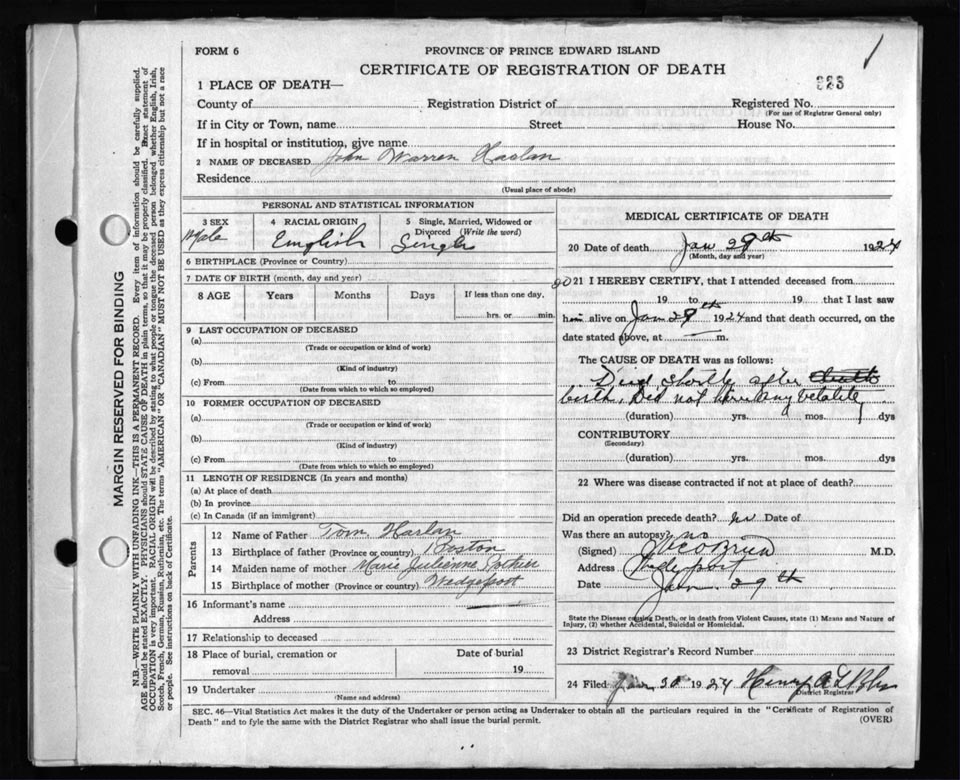 FORM 6
PROVINCE OF PRINCE EDWARD ISLAND
CERTIFICATE OF REGISTRATION OF DEATH
323
1 PLACE OF DEATH—
County of Registration District of Registered No.
(For use of Registrar General only)
If in City or Town, name Street House No.
If in hospital or institution, give name
2 NAME OF DECEASED John Warren Harlan
Residence
(Usual place of abode)
MARGIN RESERVED FOR BINDING
N.B.—WRITE PLAINLY WITH UNFADING INK—THIS IS A PERMANENT RECORD. Every item of information should be carefully supplied.
AGE should be stated EXACTLY. PHYSICIANS should STATE CAUSE OF DEATH in plain terms, so that it may be properly classified. Exact statement of
OCCUPATION is very important. RACIAL ORIGIN will be described by stating to what people or tongue the deceased person belonged whether English, Irish,
Scotch, French, German, Russian, Ruthenian, etc. The terms "AMERICAN" OR "CANADIAN" MUST NOT BE USED as they express citizenship but not a race
or people. See instructions on back of Certificate.
PERSONAL AND STATISTICAL INFORMATION
3 SEX
Male
4 RACIAL ORIGIN
English
5 Single, Married, Widowed or
Divorced (Write the word)
Single
6 BIRTHPLACE (Province or Country)
7 DATE OF BIRTH (month, day and year)
8 AGE Years Months Days If less than one day,
hrs. or min.
9 LAST OCCUPATION OF DECEASED
(a)
(Trade or occupation or kind of work)
(b)
(Kind of industry)
(c) From to
(Date from which to which so employed)
10 FORMER OCCUPATION OF DECEASED
(a)
(Trade or occupation or kind of work)
(b)
(Kind of industry)
(c) From to
(Date from which to which so employed)
11 LENGTH OF RESIDENCE (In years and months)
(a) At place of death
(b) In province
(c) In Canada (if an immigrant)
Parents
12 Name of Father Tom Harlan
13 Birthplace of father (Province or country) Boston
14 Maiden name of mother Marie Julienne Pothier
15 Birthplace of mother (Province or country) Wedgeport
16 Informant's name
Address
17 Relationship to deceased
18 Place of burial, cremation or
removal
Date of burial
19
19 Undertaker
(Name and address)
MEDICAL CERTIFICATE OF DEATH
20 Date of death Jan 29th 1924
(Month, day and year)
21 I HEREBY CERTIFY, that I attended deceased from
19 to 19 that I last saw
him alive on Jan 29th 1924 and that death occurred, on the
date stated above, at m.
The CAUSE OF DEATH was as follows:
Died shortly after death
birth. Did not have any vetality
(duration) yrs. mos. dys
CONTRIBUTORY
(Secondary)
(duration) yrs. mos. dys
22 Where was disease contracted if not at place of death?
Did an operation precede death? no Date of
Was there an autopsy? no
(Signed) O'Brien M.D.
Address Wedgeport
Date Jan 29th
State the Disease causing Death, or in death from Violent Causes, state (1) Means and Nature of
Injury, (2) whether Accidental, Suicidal or Homicidal.
23 District Registrar's Record Number
24 Filed Jan 30 1924 Henry A
District Registrar
SEC. 46—Vital Statistics Act makes it the duty of the Undertaker or person acting as Undertaker to obtain all the particulars required in the "Certificate of Registration of
Death" and to fyle the same with the District Registrar who shall issue the burial permit.
(OVER)